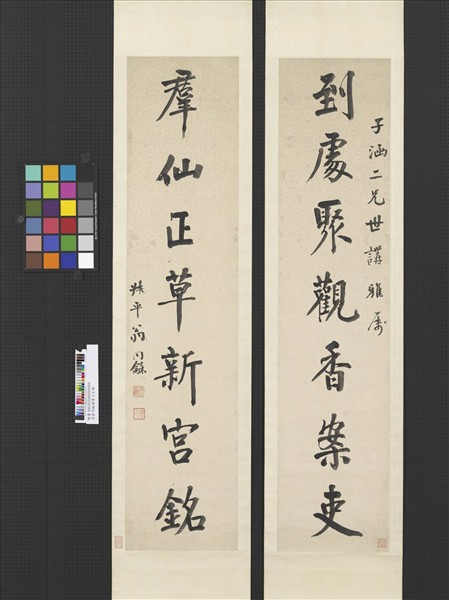 子涵二兄世講雅屬
到處聚觀香案吏
羣仙正草新宮銘
叔平翁同龢